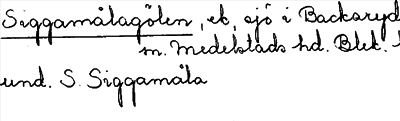 Siggamålagölen, et, sjö i Backaryd
sn. Medelstads hd. Blek. l
und. S. Siggamåla